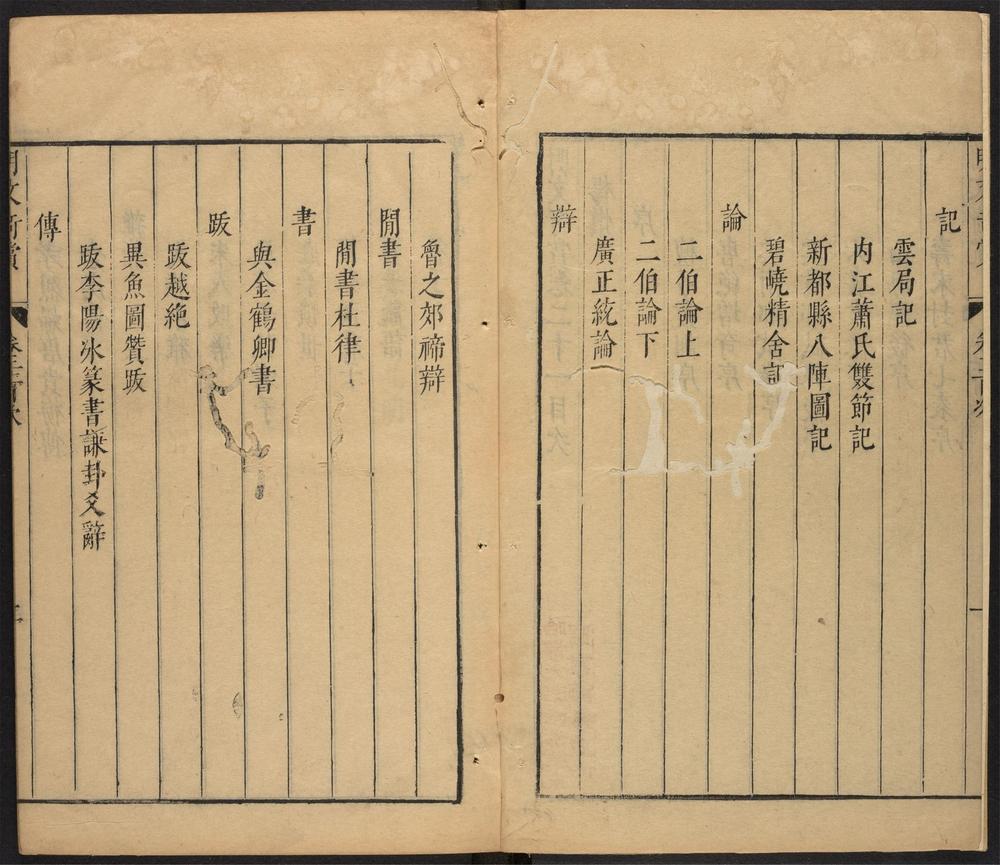 記
雲局記
内江蕭氏雙節記
新都縣八陣圖記
碧嶢精舍記
論
二伯論上
二伯論下
廣正統論
辯
魯之郊禘辯
閒書
閒書杜律
書
與金鶴卿書
跋
跋越絶
異魚圖贊跋
跋李陽冰篆書謙卦爻辭
傳